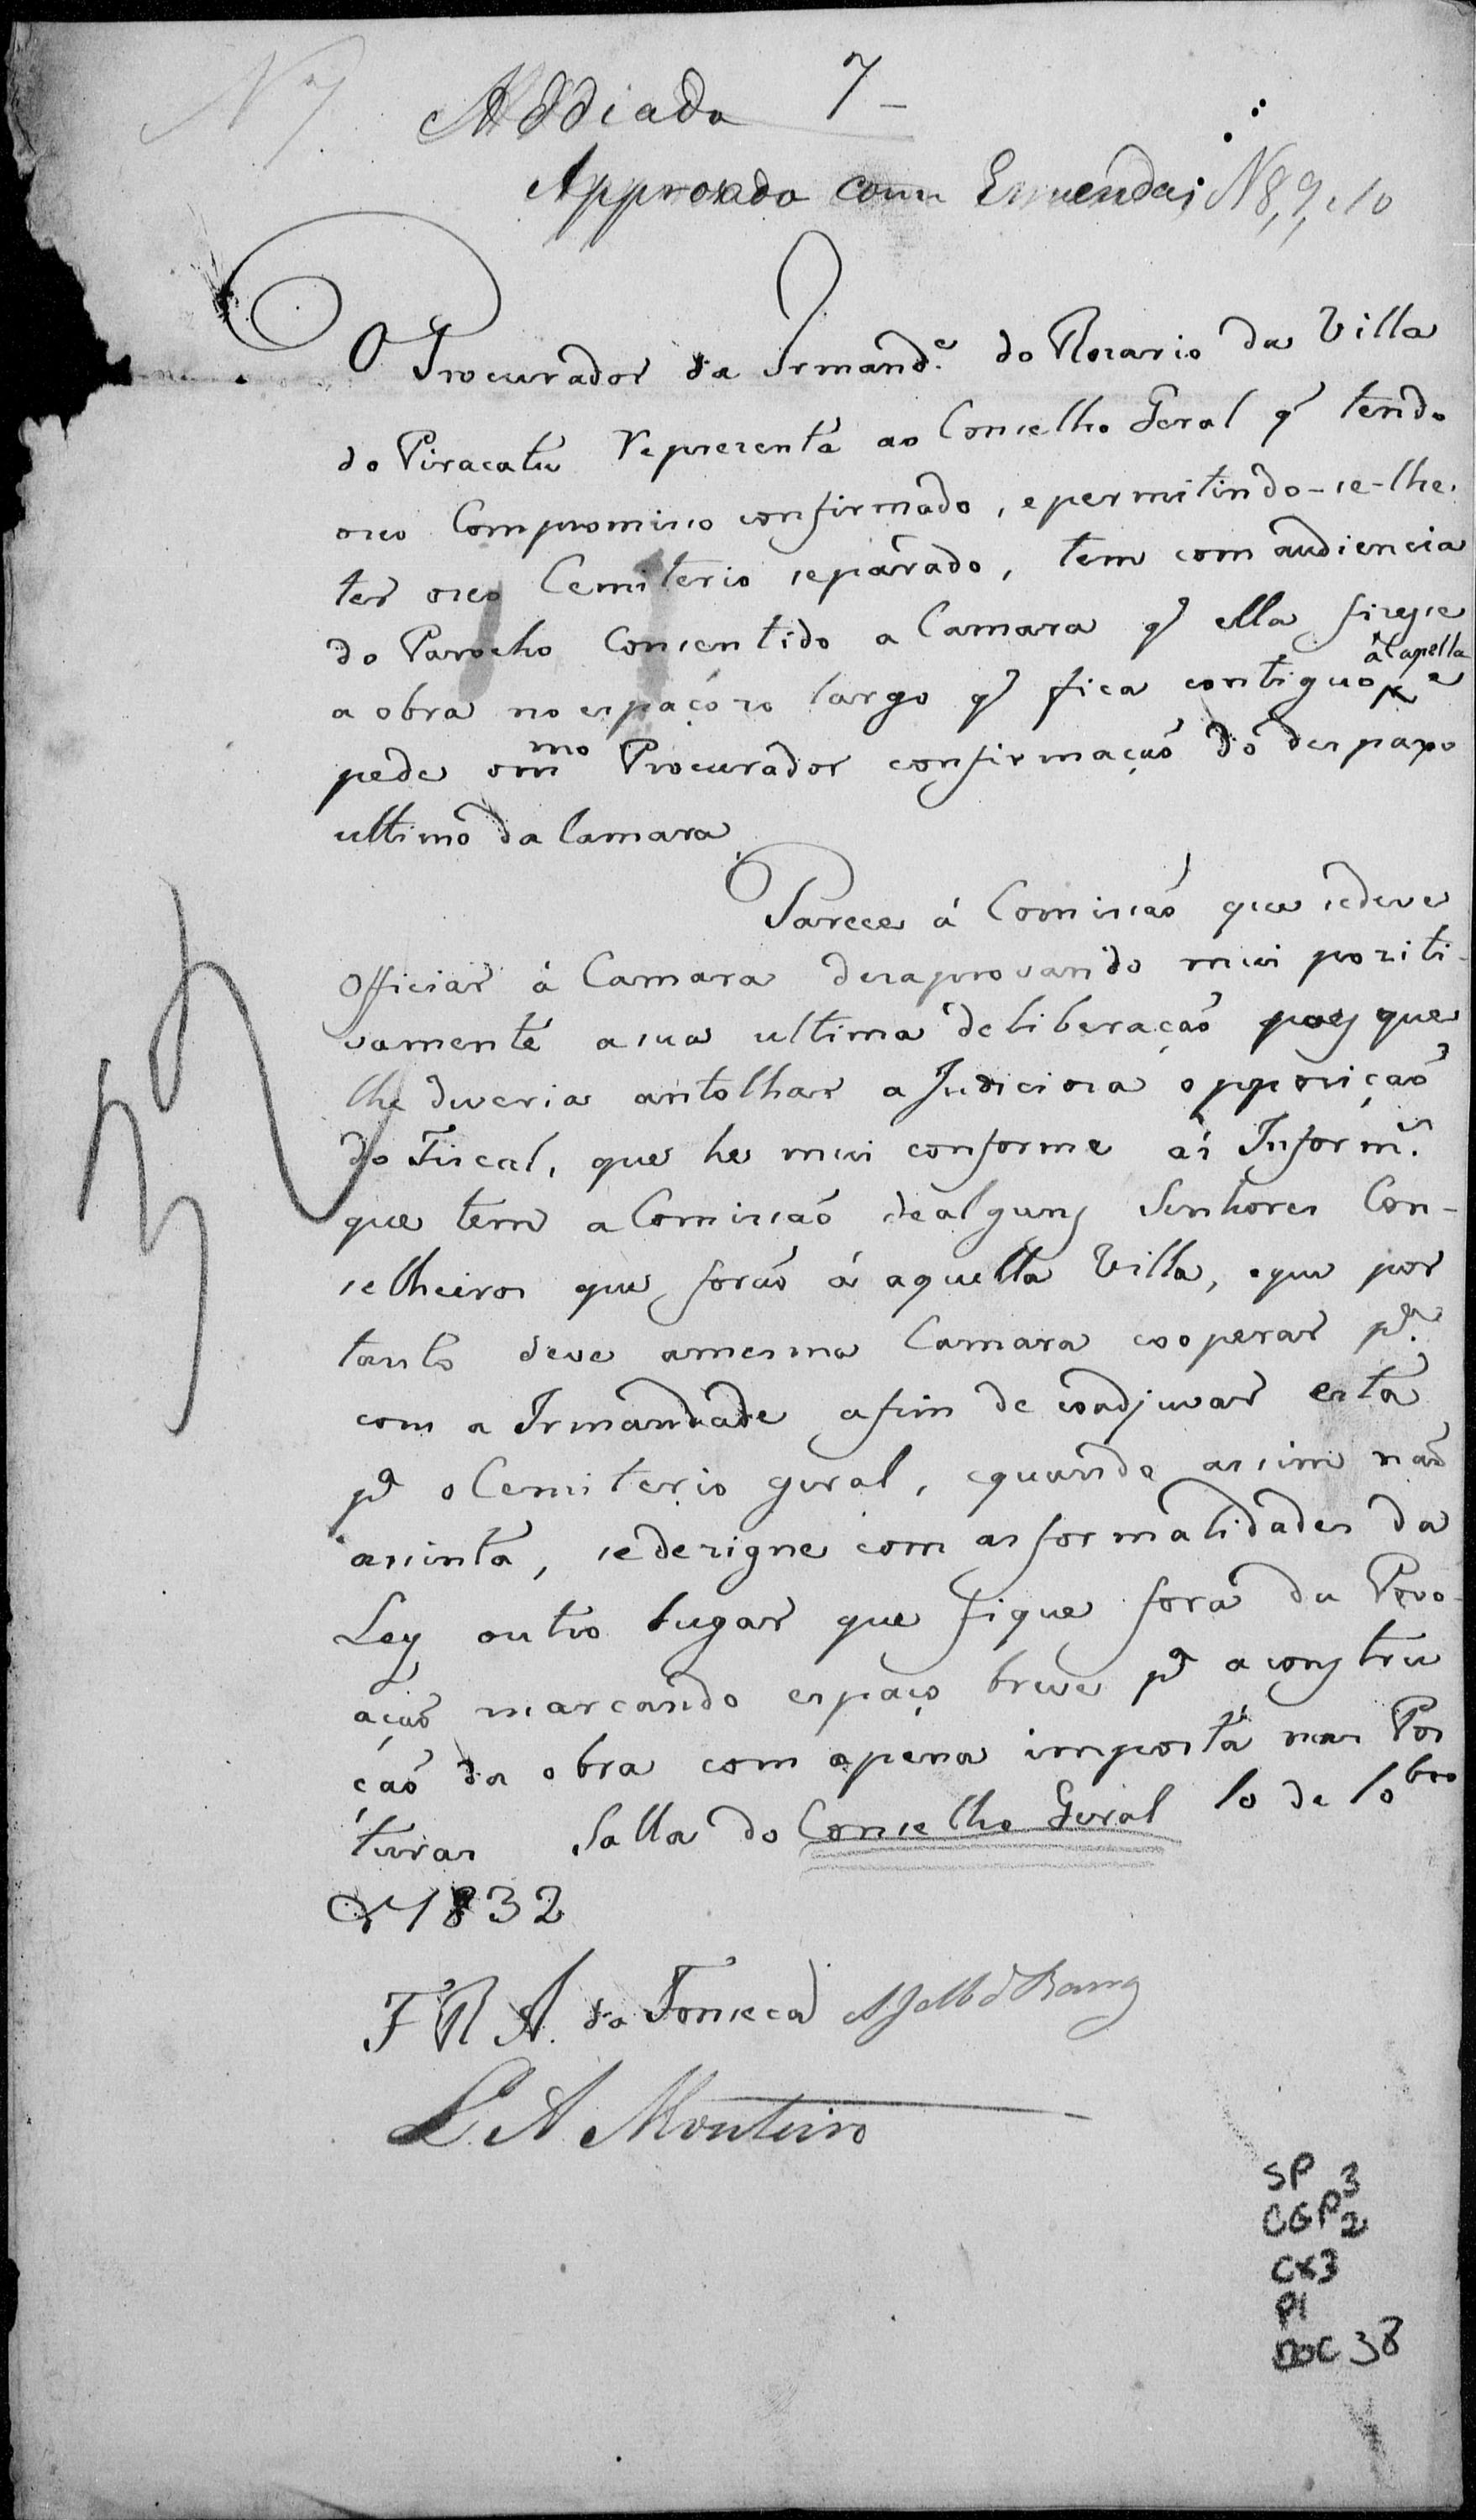 N 7
Addiada 7
Approvado com Emendas N 8, 9, e 10
O Procurador da Irmand.e do Rozario da Villa
do Piracatú reprezenta ao Conselho Geral q' tendo
oseo Compromisso confirmado, epermitindo-se-lhe
ter oseo Cemiterio separado, tem com audiencia
do Parocho Consentido a Camara q' ella fizesse
a obra no espaçozo largo q' fica contiguo á Capella e
pede ommo Procurador confirmação do despaxo
ultimo da Camara.
Parece á Comissaõ que sedeve
Officiar á Camara desaprovando mui poziti-
vamente asua ultima deliberaçaõ poes que
lhe deveria antolhar a Judiciosa opposiçaõ
do Fiscal, que he mui conforme ás Inform.s
que tem a Comissaõ dealguns Senhores Con-
selheiros que foraõ á aquella Villa, eque por
tanto deve amesma Camara cooperar p.a
com a Irmandade afim de coadjuvar esta
p.a o Cemiterio geral, equando assim naõ
assinta, sedezigne com asformalidades da
Ley outro lugar que fique fora da Povo-
açaõ marcando espaço breve p.a aconstru
çaõ da obra com apena imposta nas Pos
turas Salla do Conselho Geral 10 de 10bro
de 1832
F R A. da Fonseca
L A Monteiro
SP 3
CGP 2
CX3
P1
DOC 38